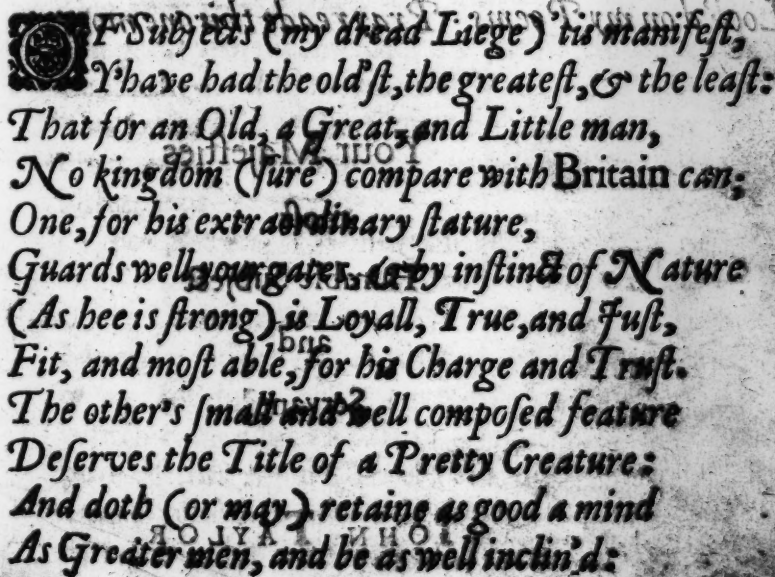 OF Subjects (my dread Liege) 'tis manifeſt,
Y'have had the old'ſt, the greateſt, & the leaſt:
That for an Old, a Great, and Little man,
No kingdom (ſure) compare with Britain can;
One, for his extraordinary ſtature,
Guards well your gates, & by inſtinct of Nature
(As hee is ſtrong) is Loyall, True, and Juſt,
Fit, and moſt able, for his Charge and Truſt.
The other's ſmall and well compoſed feature
Deſerves the Title of a Pretty Creature:
And doth (or may) retaine as good a mind
As Greater men, and be as well inclin'd: